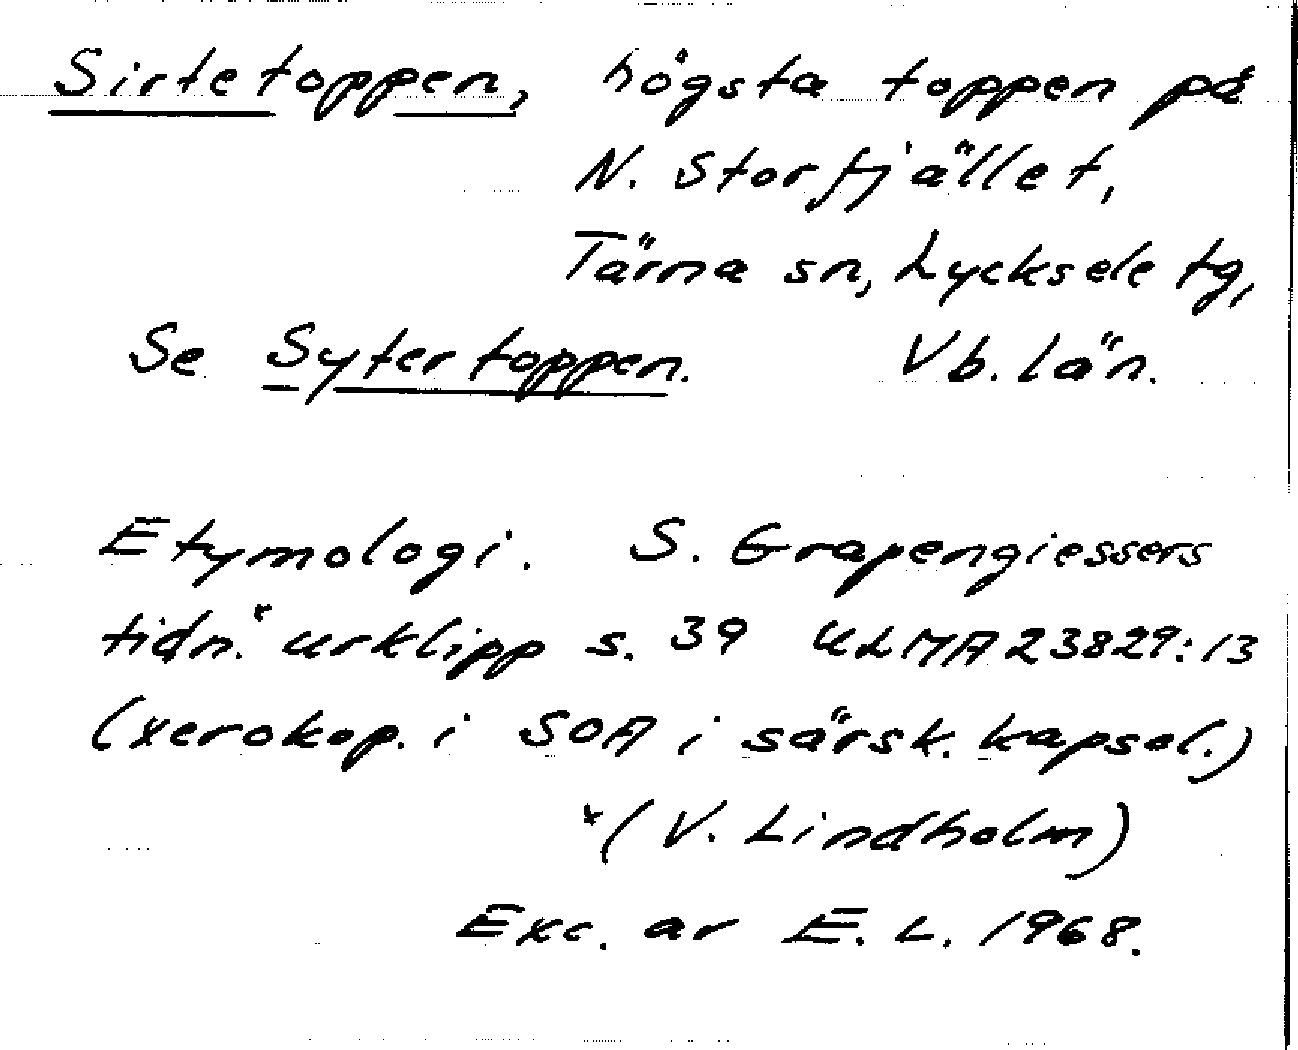 Sirtetoppen, högsta toppen på
N. Storfjället,
Tärna sn, Lycksele tg,
Se Sytertoppen. Vb. län.
Etymologi. S. Grapengiessers
tidn.* urklipp s. 39 ULMA 23829:13
(xerokop. i SOA i särsk. kapsel.)
*(V. Lindholm)
Exc. av E. L. 1968.